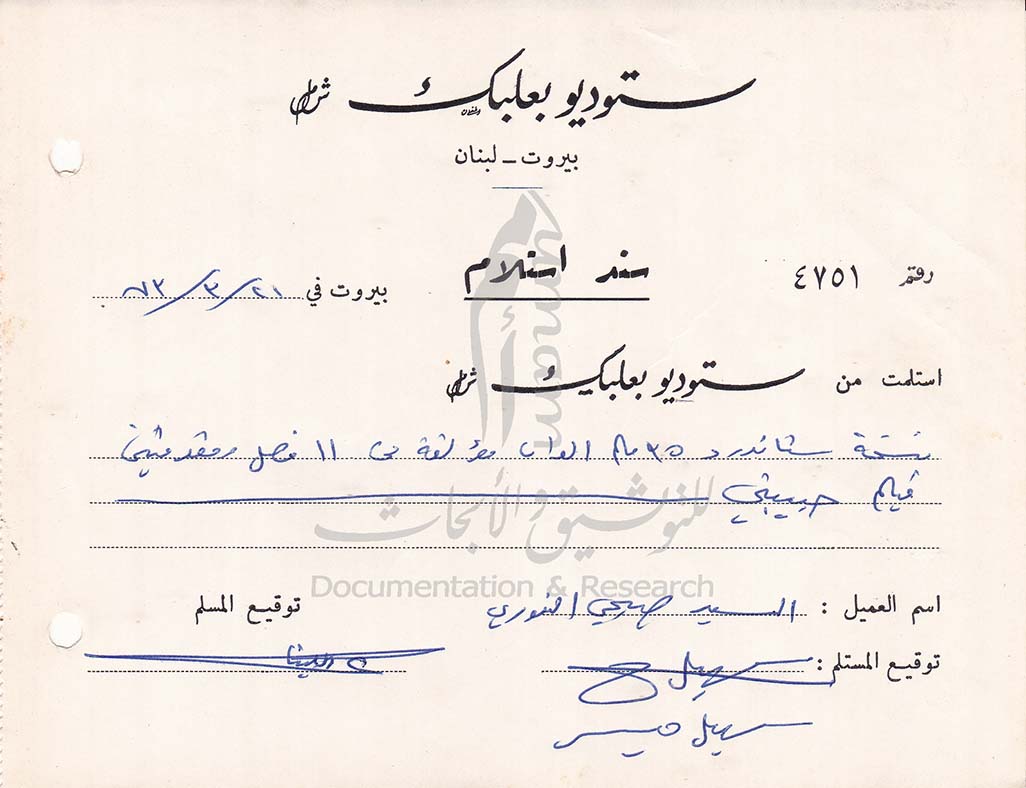 ستوديو بعلبك ش.م.ل
بيروت ــ لبنان
سند استلام
رقم ٤٧٥١
بيروت في ٢١ / ٣ / ٧٣
استلمت من ستوديو بعلبك ش.م.ل
نسخة ستاندرد ٣٥ ملم الوان مؤلفة من ١١ فصل ومقدمتين
فيلم حبيبتي
للتوثيق والأبحاث
Documentation & Research
اسم العميل : السيد صبحي النوري
توقيع المسلم
توقيع المستلم : سهيل
سهيل